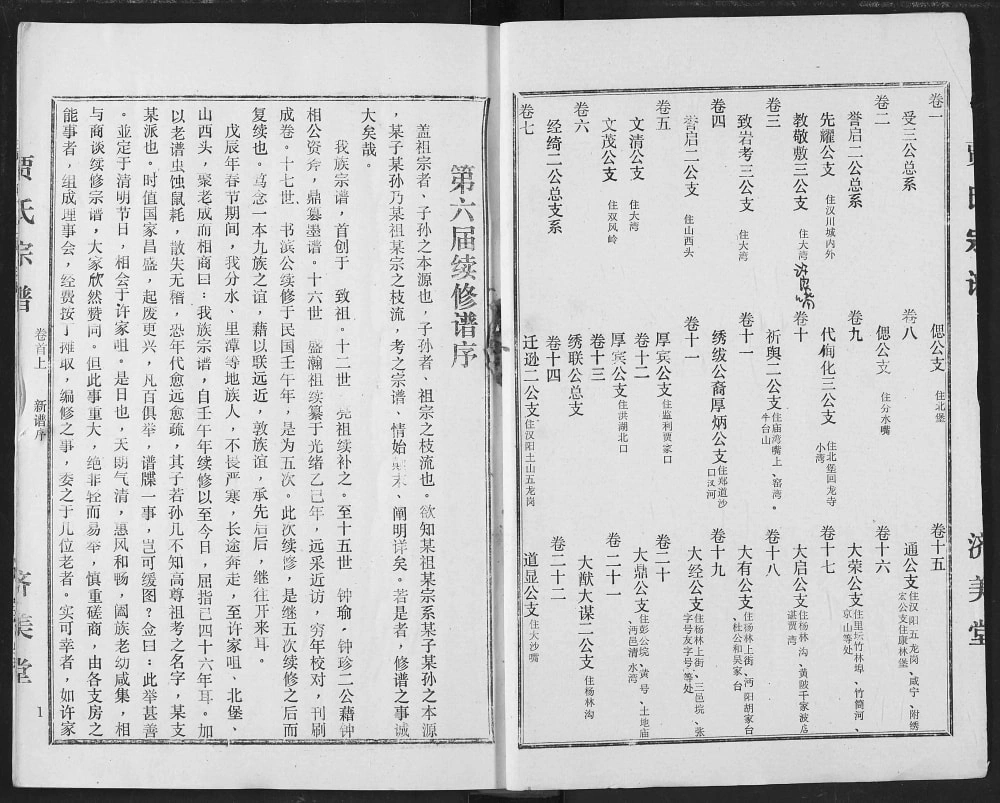 卷一
受三公总系
卷二
誉启二公总系
先耀公支 住汉川城内外
教敬敷三公支 住大湾
卷三
致岩考三公支 住大湾
卷四
誉启二公支 住山西头
卷五
文清公支 住大湾
文茂公支 住双风岭
卷六
经绮二公总支系
卷七
偲公支 住北堡
卷八
偲公支 住分水嘴
卷九
代侚化三公支 住北堡回龙寺小湾
卷十
祈舆二公支 住庙湾嘴上、窑湾。牛台山
卷十一
绣绂公裔厚炳公支 住郑道沙口汉河
卷十一
厚宾公支 住监利贾家口
卷十二
厚宾公支 住洪湖北口
卷十三
绣联公总支
卷十四
迁逊二公支 住汉阳土山五龙岗
卷十五
通公支 住汉阳五龙岗、咸宁、附绣宏公支住康林堡
卷十六
大荣公支 住里坛竹林埠、竹筒河、京山等处
卷十七
大启公支 住杨林沟、黄陂千家波店湛贾湾
卷十八
大有公支 住杨林上街、沔阳胡家台、杜公和吴家台
卷十九
大经公支 住杨林上街、三邑垸、张字号友字号等处
卷二十
大鼎公支 住彭公垸、黄号、土地庙、沔邑清水湾
卷二十一
大猷大谋二公支 住杨林沟
卷二十二
道显公支 住大沙嘴
济美堂
第六届续修谱序
盖祖宗者、子孙之本源也，子孙者、祖宗之枝流也。欲知某祖某宗系某子某孙之本源
，某子某孙乃某祖某宗之枝流，考之宗谱、情始末、阐明详矣。若是者，修谱之事诚
大矣哉。
我族宗谱，首创于 致祖。十二世 尧祖续补之。至十五世 钟瑜，钟珍二公藉钟
相公资斧，鼎纂墨谱。十六世 盛瀚祖续纂于光绪乙巳年，远采近访，穷年校对，刊刷
成卷。十七世、书滨公续修于民国壬午年，是为五次。此次续修，是继五次续修之后而
复续也。笃念一本九族之谊，藉以联远近，敦族谊，承先启后，继往开来耳。
戊辰年春节期间，我分水、里潭等地族人，不畏严寒，长途奔走，至许家咀、北堡、
山西头，聚老成而相商曰：我族宗谱，自壬午年续修以至今日，屈指已四十六年耳。加
以老谱虫蚀鼠耗，散失无稽，恐年代愈远愈疏，其子若孙几不知高尊祖考之名字，某支
某派也。时值国家昌盛，起废更兴，凡百俱举，谱牒一事，岂可缓图？佥曰：此举甚善
。並定于清明节日，相会于许家咀。是日也，天朗气清，惠风和畅，阖族老幼咸集，相
与商谈续修宗谱，大家欣然赞同。但此事重大，绝非轻而易举，慎重磋商，由各支房之
能事者，组成理事会，经费按丁摊取，编修之事，委之于几位老者。实可幸者，如许家
贾氏宗谱
卷首上 新谱序
济美堂
1